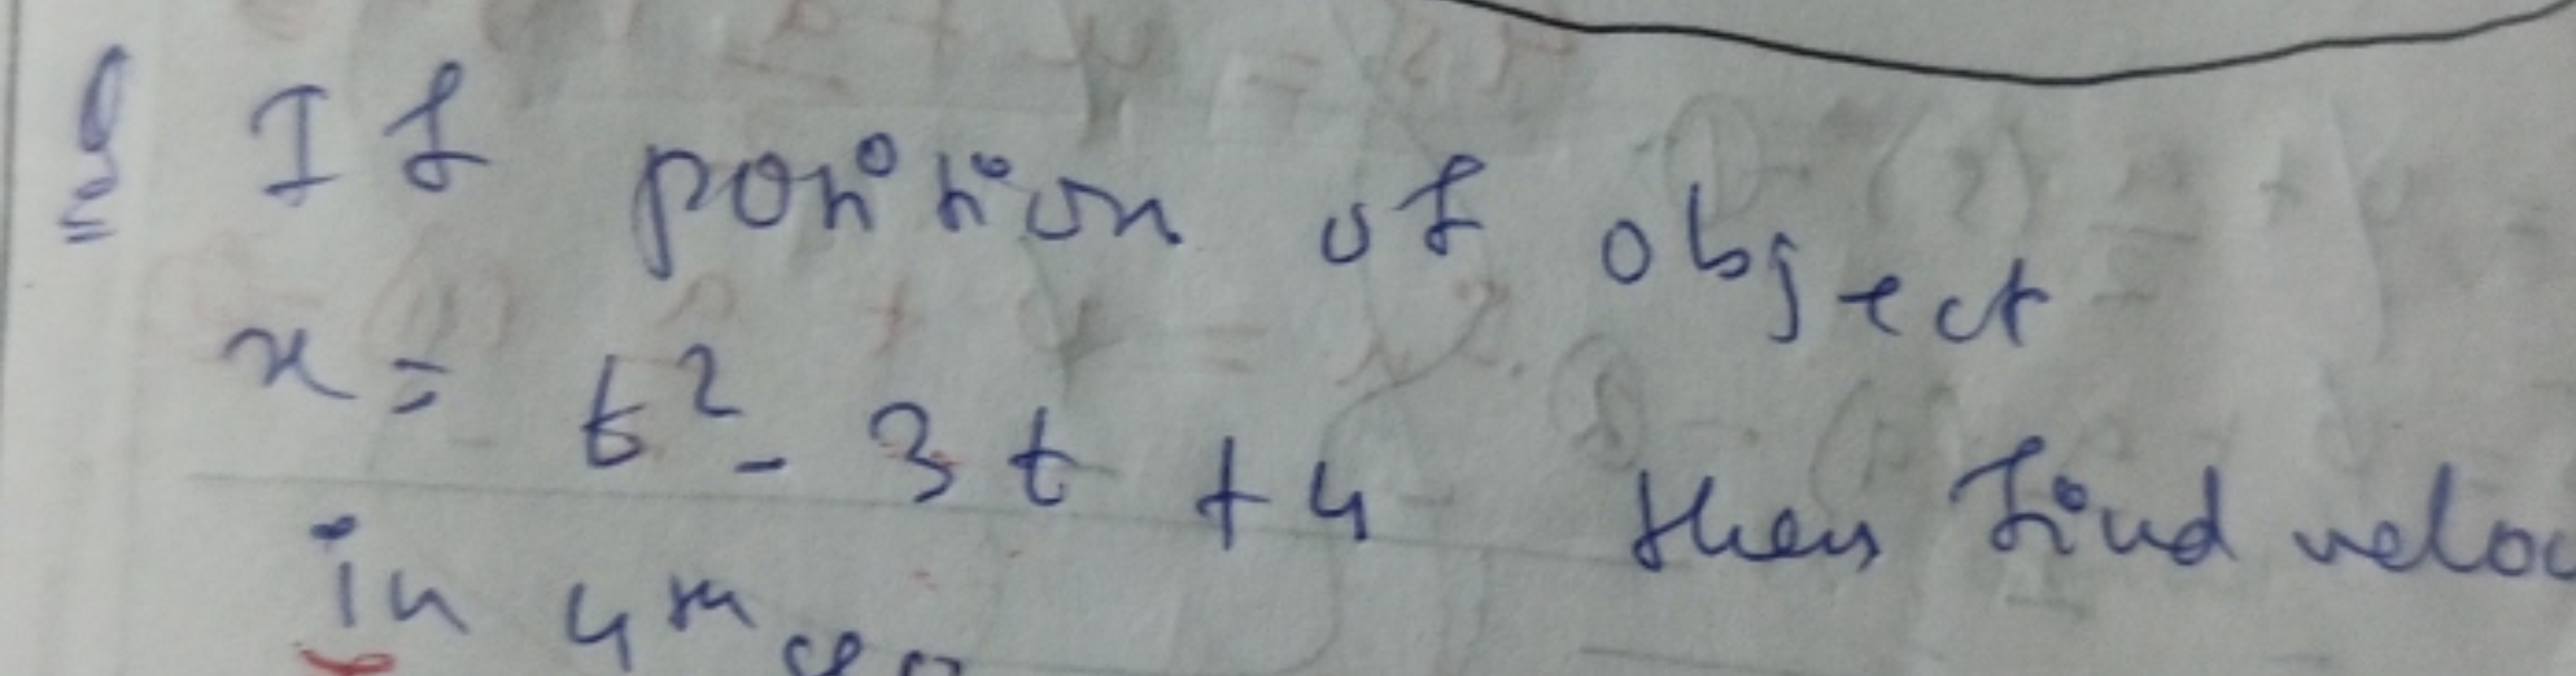 If position of object
x = t² - 3t + 4 then find veloc
in 4th sec